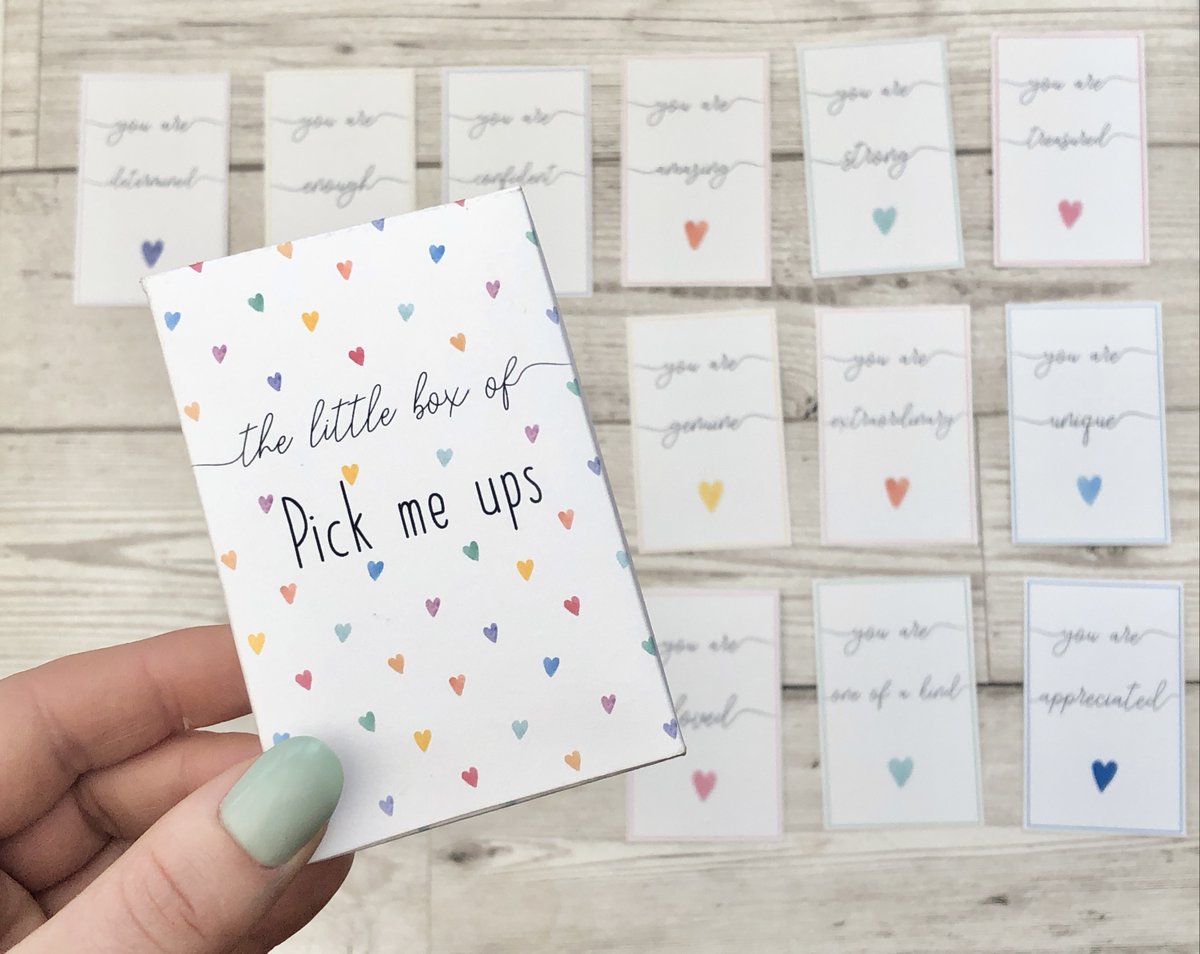 you are
determined
you are
enough
you are
confident
you are
amazing
you are
strong
you are
treasured
the little box of
Pick me ups
you are
genuine
you are
extraordinary
you are
unique
you are
loved
you are
one of a kind
you are
appreciated